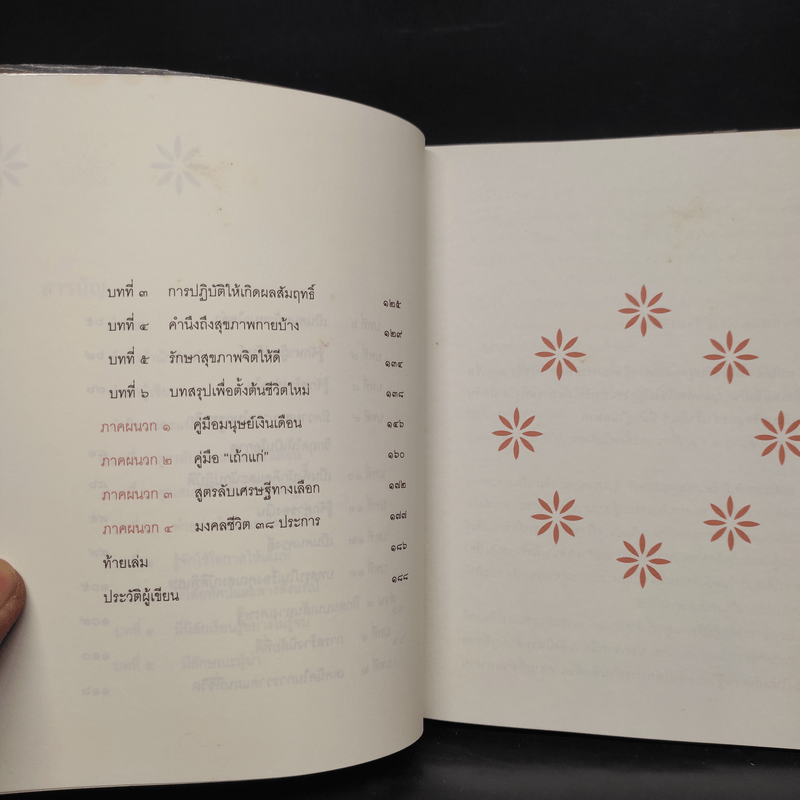 บทที่ ๓ การปฏิบัติให้เกิดผลสัมฤทธิ์ ๑๒๕
บทที่ ๔ คำนึงถึงสุขภาพกายบ้าง ๑๒๙
บทที่ ๕ รักษาสุขภาพจิตให้ดี ๑๓๔
บทที่ ๖ บทสรุปเพื่อตั้งต้นชีวิตใหม่ ๑๓๘
ภาคผนวก ๑ คู่มือมนุษย์เงินเดือน ๑๔๖
ภาคผนวก ๒ คู่มือ “เถ้าแก่” ๑๖๐
ภาคผนวก ๓ สูตรลับเศรษฐีทางเลือก ๑๗๒
ภาคผนวก ๔ มงคลชีวิต ๓๘ ประการ ๑๗๗
ท้ายเล่ม ๑๘๖
ประวัติผู้เขียน ๑๘๘